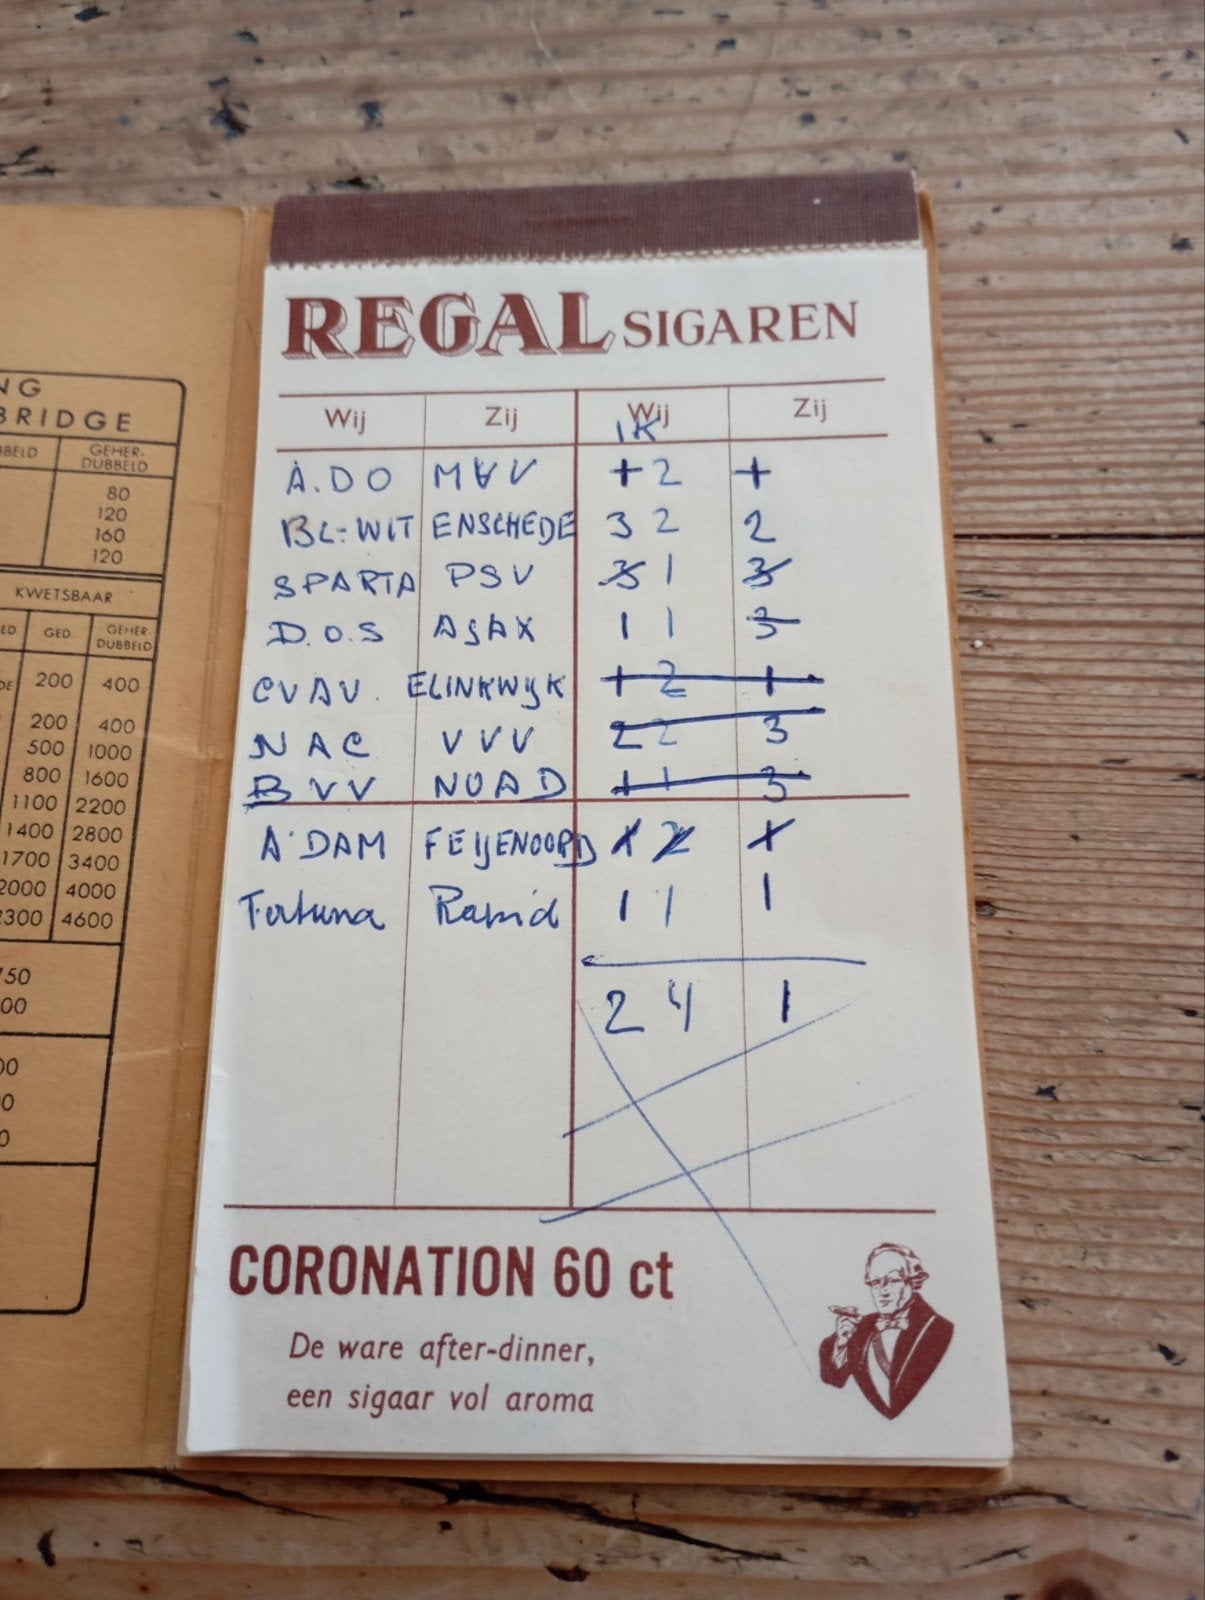 REGAL SIGAREN
Wij Zij Wij Zij
IK
A.D O M V V + 2 +
BL-WIT ENSCHEDE 3 2 2
SPARTA PSV 3 1 3
D.O.S AJAX 1 1 3
CVAV. ELINKWIJK 1 2 1
N A C V V V 2 2 3
B V V NOAD 1 1 3
A'DAM FEIJENOORD 1 2 1
Fortuna Rapid 1 1 1
2 4 1
CORONATION 60 ct
De ware after-dinner,
een sigaar vol aroma
NG
BRIDGE
BBELD GEHER-
DUBBELD
80
120
160
120
KWETSBAAR
ED GED. GEHER-
DUBBELD
DE 200 400
200 400
500 1000
800 1600
1100 2200
1400 2800
1700 3400
2000 4000
2300 4600
750
00
00
0
0